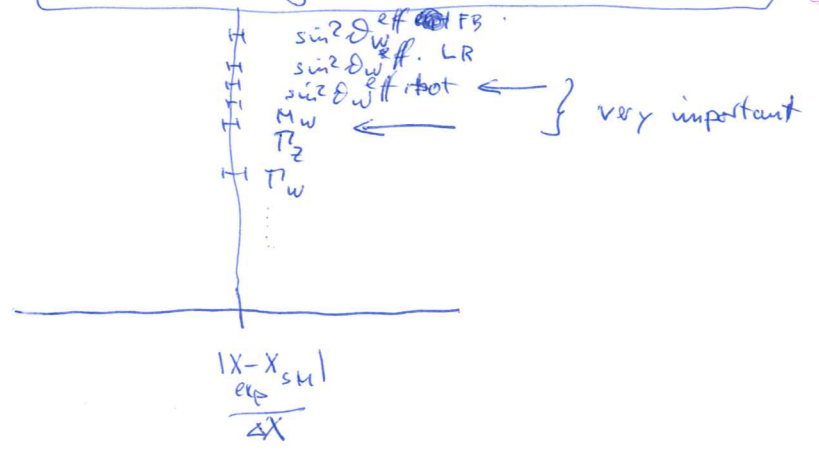 sin² θ_W^eff FB
sin² θ_W^eff. LR
sin² θ_W^eff tot
M_W
very important
Γ_Z
Γ_W
|X_exp - X_SM|
ΔX